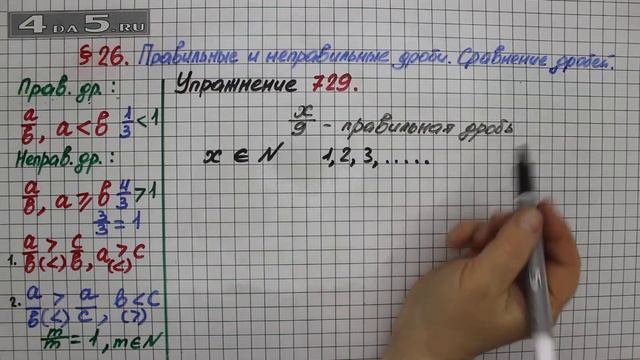 4ДА5.RU
§ 26. Правильные и неправильные дроби. Сравнение дробей.
Прав. др.:
a/b, a < b 1/3 < 1
Неправ. др.:
a/b, a ⩾ b 4/3 > 1
3/3 = 1
1. a/b >(<) c/b, a >(<) c
2. a/b >(<) a/c, b < c (>)
m/m = 1, m ∈ N
Упражнение 729.
x/9 - правильная дробь
x ∈ N 1, 2, 3, .....